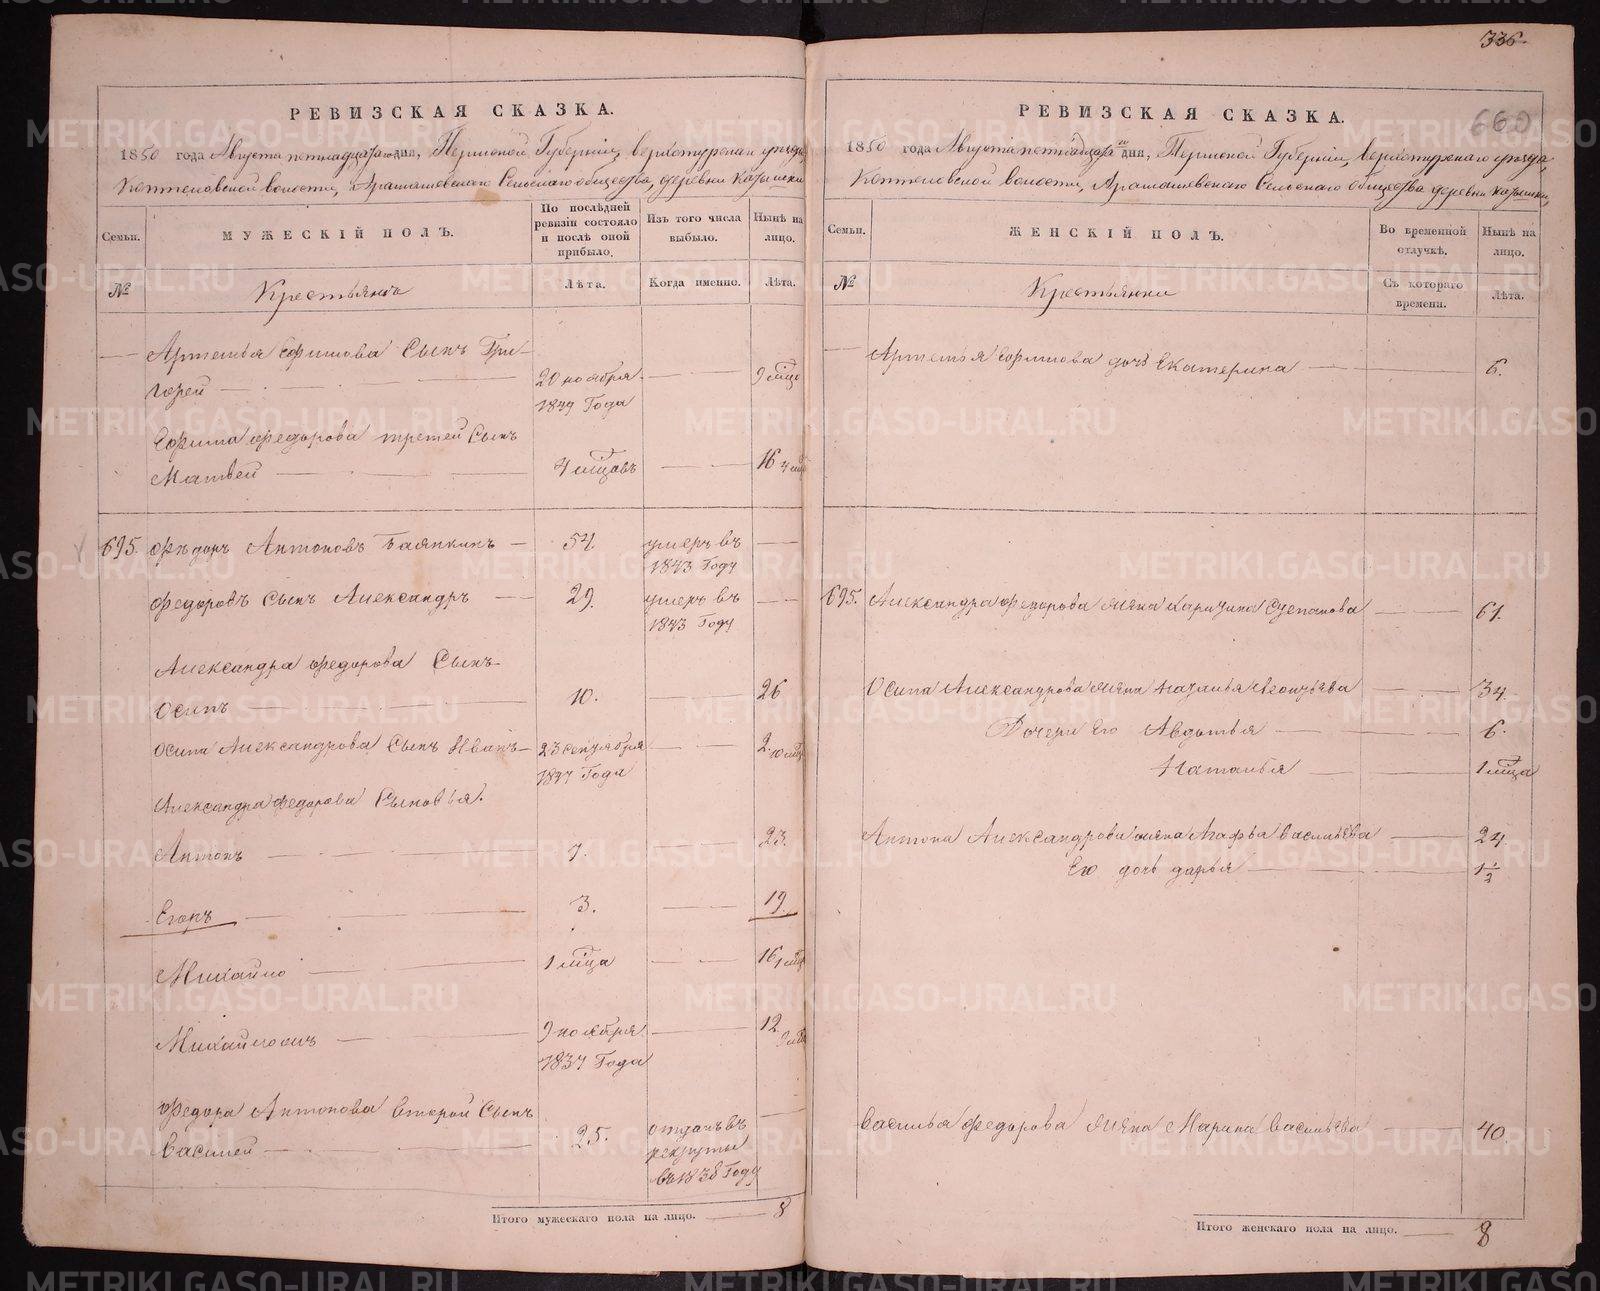 336
660
РЕВИЗСКАЯ СКАЗКА.
1850 года Августа пятнадцатаго дня, Пермской Губернии, верхотурскаго уезда,
Коптеловской волости, Арамашевскаго Сельскаго общества, деревни
Семьи.
МУЖЕСКІЙ ПОЛЪ.
По послѣдней ревизіи состояло и послѣ оной прибыло.
Изъ того числа выбыло.
Нынѣ на лицо.
№
Крестьянъ
Лѣта.
Когда именно.
Лѣта.
Артемья Ефимова Сынъ Гри-
горей
20 ноября 1849 Года
9 мсцо
Ефима Федорова третей Сынъ
Матвей
4 мсцовъ
16 4 мсц
695. Федоръ Антоновъ
54.
умеръ въ 1843 Году
Федоровъ Сынъ Александръ
29.
умеръ въ 1843 Году
Александра Федорова Сынъ
Осипъ
10.
26
Осипа Александрова Сынъ Иванъ
23 сентября 1847 Года
2 10 мсц
Александра Федорова Сыновья.
Антонъ
7.
23.
Егоръ
3.
19.
Михайло
1 мсца
16 1 мсц
9 ноября 1837 Года
12 9 мсц
Федора Антонова второй Сынъ
Василей
25.
отданъ въ рекруты въ 1838 Году
Итого мужескаго пола на лицо. 8
РЕВИЗСКАЯ СКАЗКА.
1850 года Августа пятнадцатаго дня, Пермской Губернии, верхотурскаго уезда,
Коптеловской волости, Арамашевскаго Сельскаго общества деревни
Семьи.
ЖЕНСКІЙ ПОЛЪ.
Во временной отлучкѣ.
Нынѣ на лицо.
№
Крестьянки
Съ котораго времени.
Лѣта.
Артемья Ефимова дочь Екатерина
6.
695. Александра Федорова жена Харитина Степанова
61.
Осипа Александрова жена Наталья Леонтьева
34.
Дочери Его Авдотья
6.
Наталья
1 мсца
Антона Александрова жена Агафья Васильева
24.
Его дочь дарья
1 1/2
Василья Федорова жена Марина Васильева
40.
Итого женскаго пола на лицо. 8
METRIKI.GASO-URAL.RU